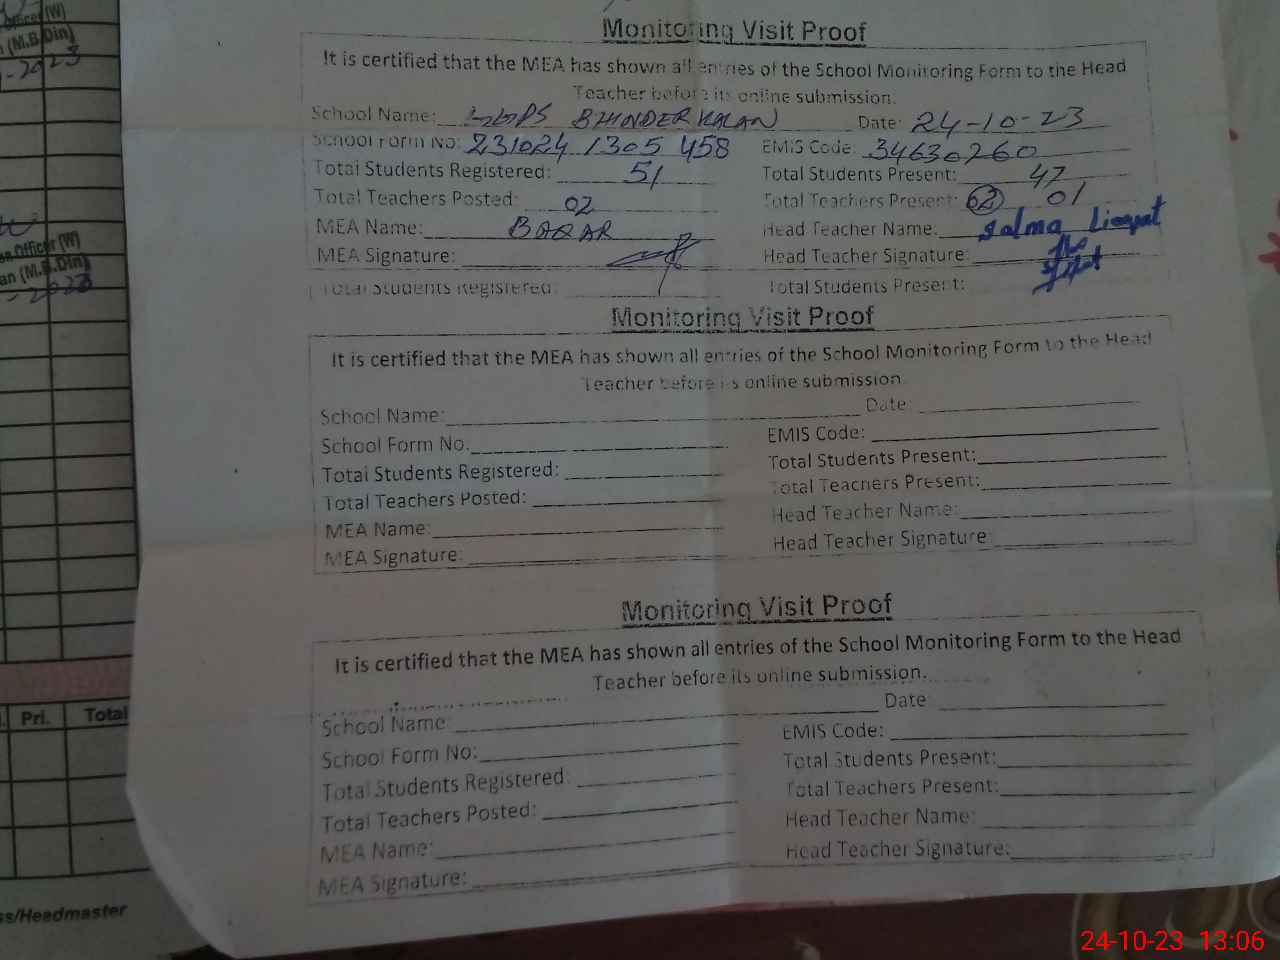 Officer (W)
(M.B.Din)
-2023
Officer (W)
an (M.B.Din)
-2023
Pri. Total
ss/Headmaster
Monitoring Visit Proof
It is certified that the MEA has shown all entries of the School Monitoring Form to the Head
Teacher before its online submission.
School Name: GGPS BHINDER KALAN Date: 24-10-23
School Form No: 231024 1305 458 EMIS Code: 34630260
Total Students Registered: 51 Total Students Present: 47
Total Teachers Posted: 02 Total Teachers Present: 02 01
MEA Name: BAQAR Head Teacher Name: Salma Liaqat
MEA Signature: Head Teacher Signature:
Total Students Registered: Total Students Present:
Monitoring Visit Proof
It is certified that the MEA has shown all entries of the School Monitoring Form to the Head
Teacher before its online submission.
School Name: Date:
School Form No. EMIS Code:
Total Students Registered: Total Students Present:
Total Teachers Posted: Total Teachers Present:
MEA Name: Head Teacher Name:
MEA Signature: Head Teacher Signature:
Monitoring Visit Proof
It is certified that the MEA has shown all entries of the School Monitoring Form to the Head
Teacher before its online submission.
School Name: Date:
School Form No: EMIS Code:
Total Students Registered: Total Students Present:
Total Teachers Posted: Total Teachers Present:
MEA Name: Head Teacher Name:
MEA Signature: Head Teacher Signature:
24-10-23 13:06